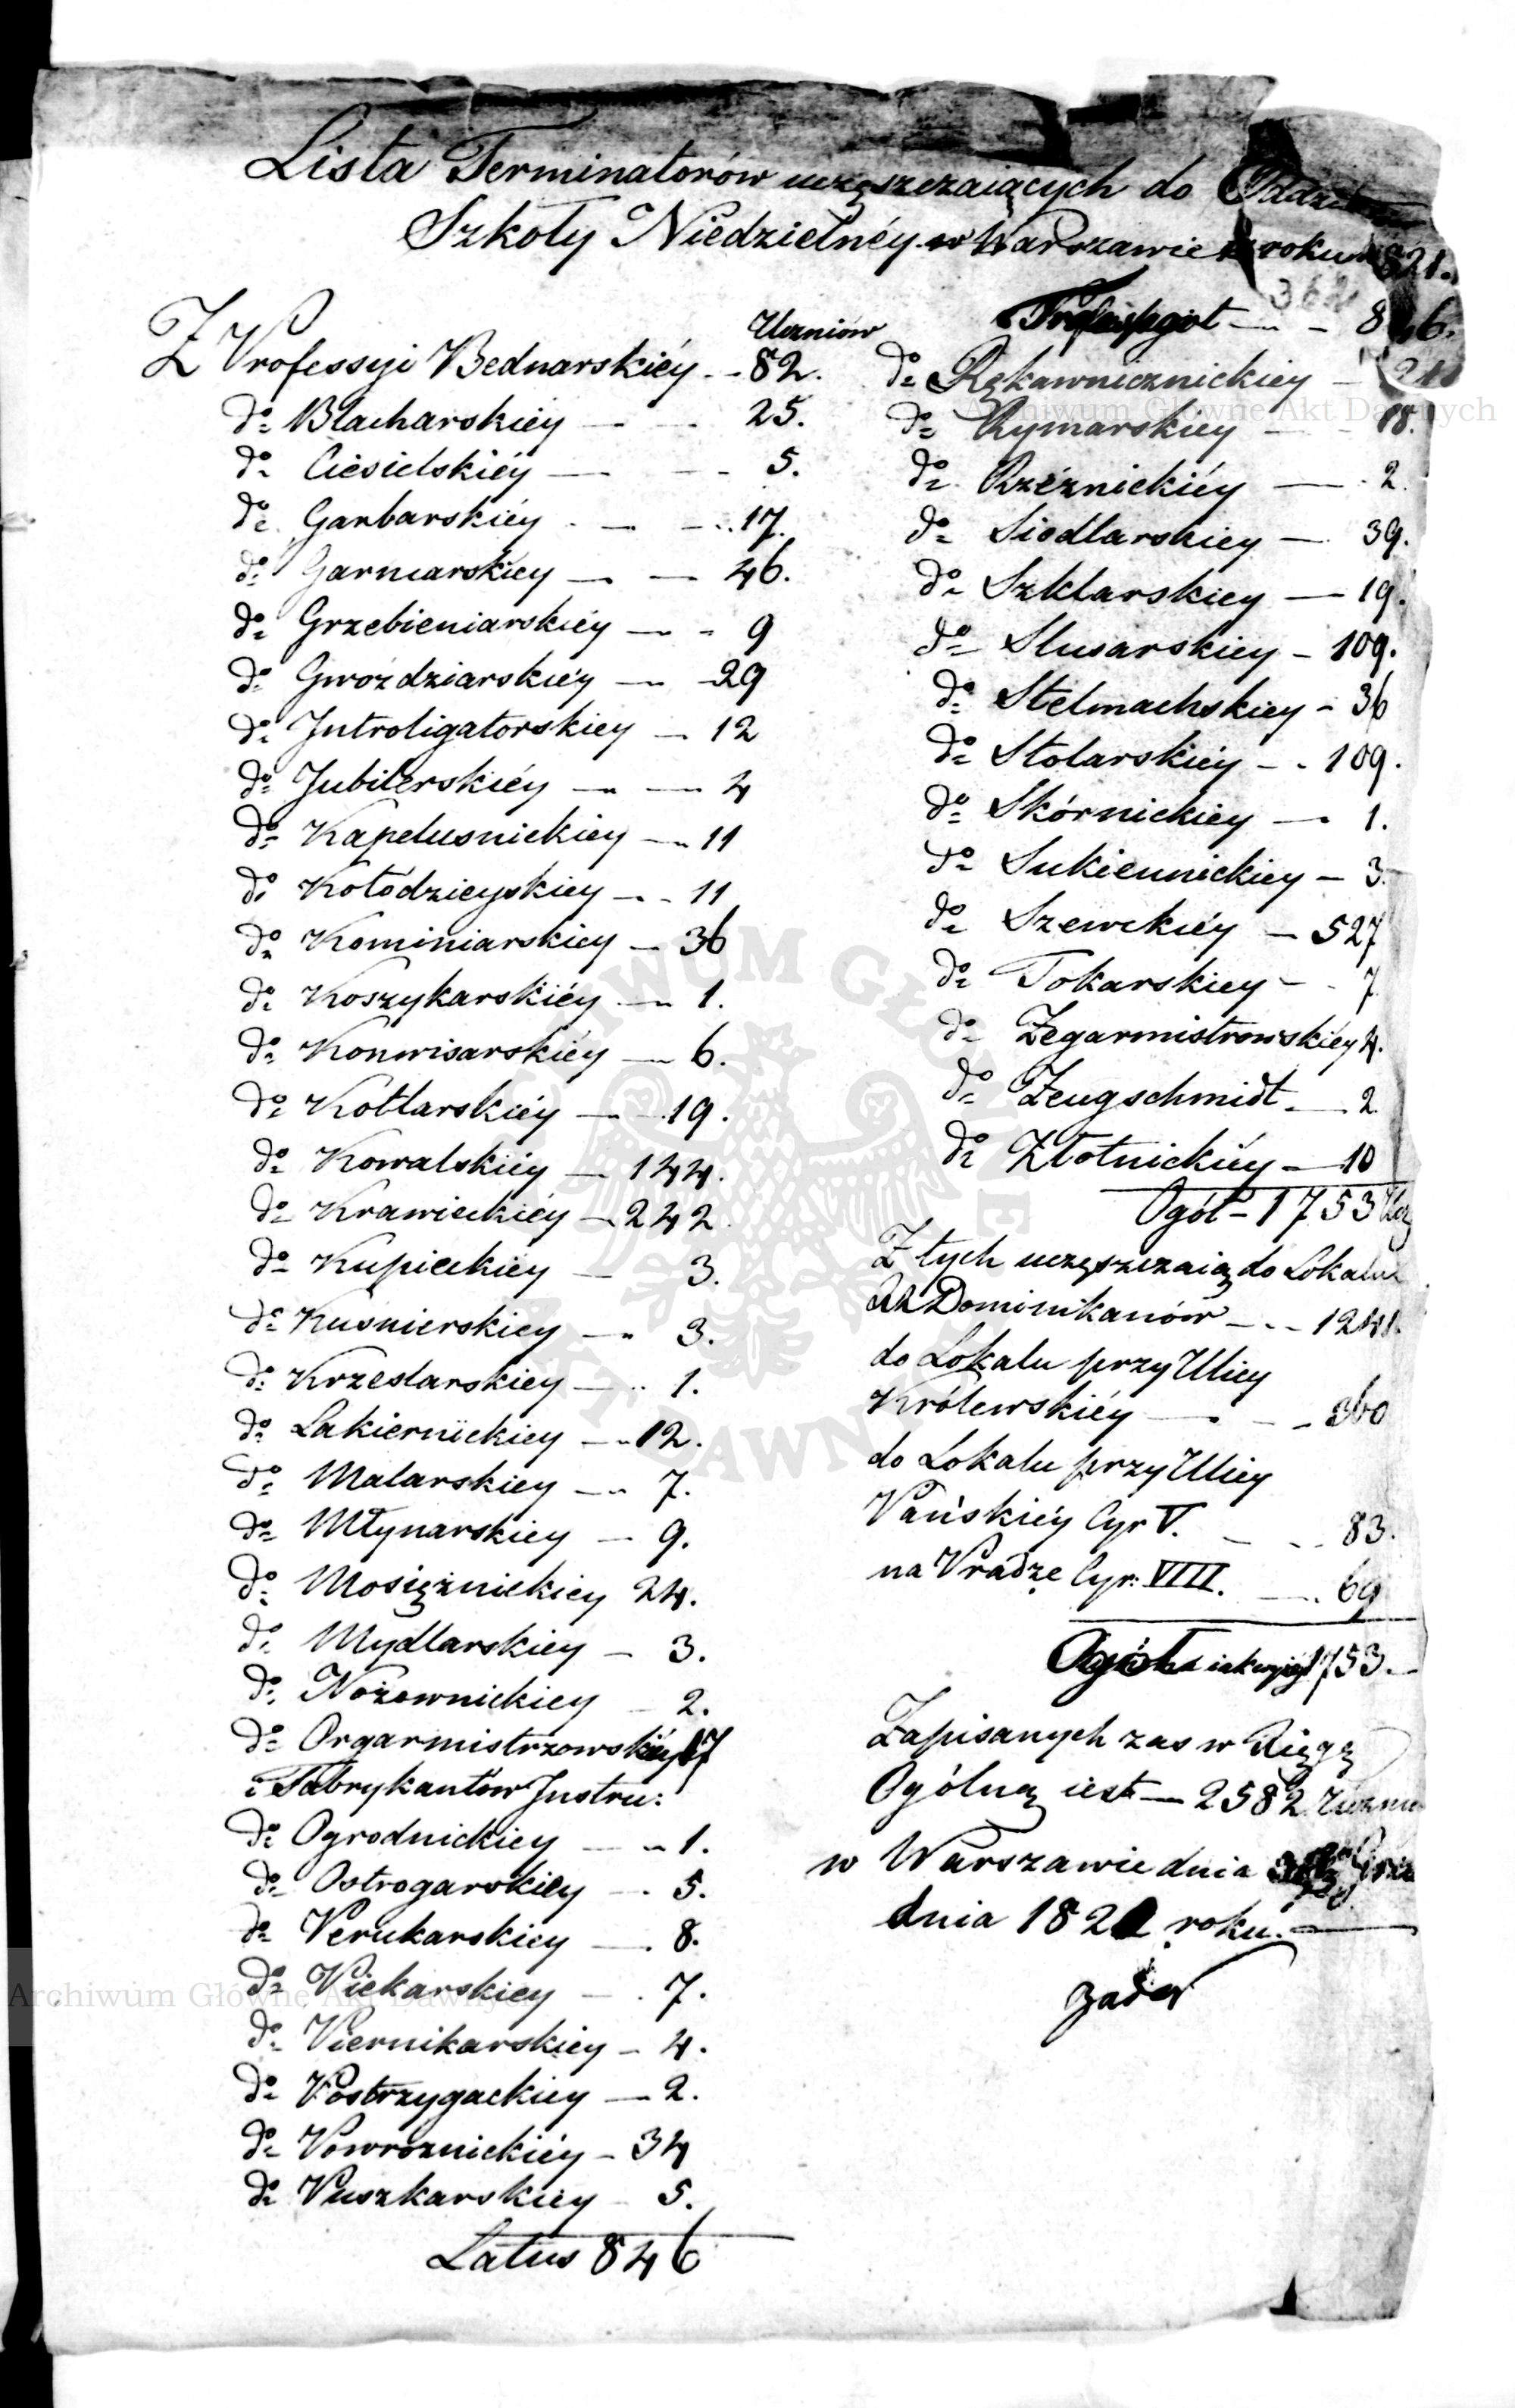 Lista Terminatorów uczęszczaiących do
Szkoły Niedzielnéy w Warszawie w roku 1821.
362
Uczniów
Z Professyi Bednarskiéy - - 82.
do Blacharskiéy — - 25.
do Ciesielskiéy — - - 5.
do Garbarskiéy - — - 17.
do Garncarskiey — — 46.
do Grzebieniarskiéy — - 9
do Gwoździarskiéy — 29
do Introligatorskiey — 12
do Jubilerskiéy — — 4
do Kapelusnickiey — 11
do Kołodzieyskiey — - 11
do Kominiarskiey — 36
do Koszykarskiéy — 1.
do Konwisarskiéy — 6.
do Kotlarskiéy — 19.
do Kowalskiéy — 144.
do Krawieckiéy — 242
do Kupieckiéy — 3.
do Kuśnierskiey — 3.
do Krzeslarskiey — 1.
do Lakiernickiey — 12.
do Malarskiey — 7.
do Młynarskiey — 9.
do Mosiężnickiey 24.
do Mydlarskiey — 3.
do Nożownickiey — 2.
do Orgarmistrzowskiéy 17
i Fabrykantów Instru:
do Ogrodnickiey — 1.
do Ostrogarskiey — 5.
do Perukarskiey — 8.
do Piekarskiey — 7.
do Piernikarskiey — 4.
do Postrzygackiey — 2.
do Powroznickiéy — 34
do Puszkarskiey — 5.
Latus 846
Transport — - 846.
do Rękawnicznickiey —
do Rymarskiey — 18.
do Rzéźnickiéy — 2.
do Siodlarskiey — 39.
do Szklarskiey — 19.
do Slusarskiey — 109.
do Stelmachskiey - 36
do Stolarskiéy - - 109.
do Skórnickiey — 1.
do Sukiennickiey — 3.
do Szewckiéy — 527
do Tokarskiey - - 7
do Zegarmistrowskiéy 4.
do Zeugschmidt — 2
do Złotnickiéy — 10
Ogół - 1753 Ucz
Z tych uczęszczaią do Lokalu
XX Dominikanów - - - 1241.
do Lokalu przy Ulicy
Królewskiéy — - - 360
do Lokalu przy Ulicy
Pańskiéy Cyr V. - - - 83.
na Pradze Cyr: VIII. — 69
Ogół iak wyżéy 1753.—
Zapisanych zas w Xięgę
Ogólną iest — 2582 Uczniów
w Warszawie dnia
dnia 1821 roku. —
Archiwum Główne Akt Dawnych
Archiwum Główne Akt Dawnych
ARCHIWUM GŁÓWNE AKT DAWNYCH